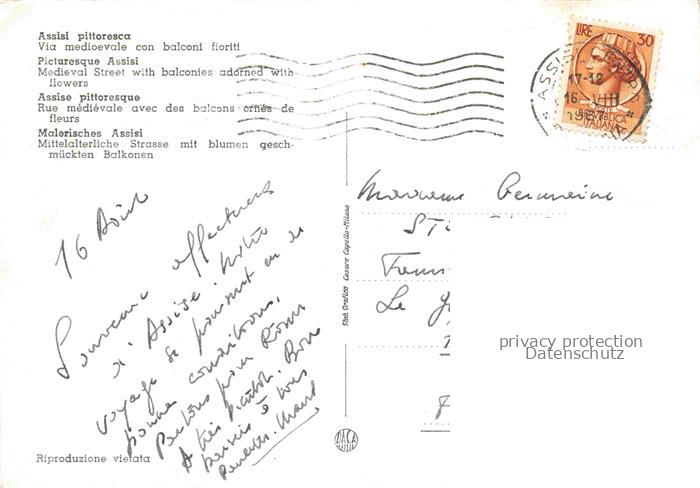 Assisi pittoresca
Via medioevale con balconi fioriti
Picturesque Assisi
Medieval Street with balconies adorned with
flowers
Assise pittoresque
Rue médiévale avec des balcons ornés de
fleurs
Malerisches Assisi
Mittelalterliche Strasse mit blumen gesch-
mückten Balkonen
LIRE 30
ASSISI
17-18
16 VIII
REPUBBLICA
ITALIANA
16 Août
Souvenir affectueux
d'Assise. Notre
voyage se poursuit en de
bonnes conditions,
Partons pour Rome
A très bientôt. Bons
baisers à tous
Stab. Grafico Cesare Capello-Milano
Madame Germaine
Le
privacy protection
Datenschutz
DACA
Riproduzione vietata